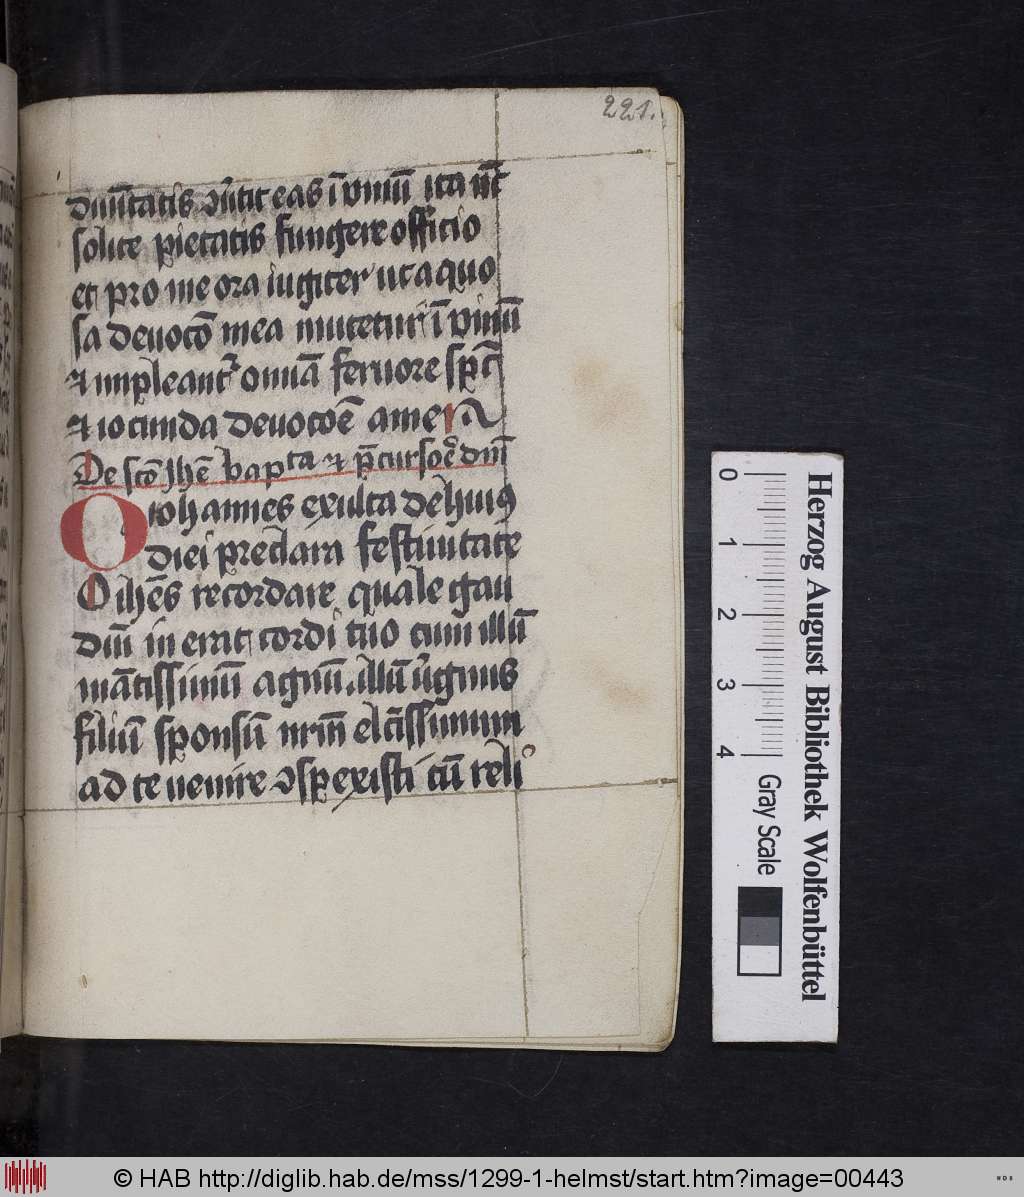 221.
diuītatis ꝯūtit eas ī vinū ita nūc
solite pietatis fungere officio
et pro me ora iugiter ut aquo
sa deuocō mea mutetur ī vinū
⁊ impleant᷑ omīa feruore spc̄
⁊ iocunda deuocōe amen
De scō Jhē bapta ⁊ p̄cursoē dnī
O iohannes exulta de huiꝰ
diei preclara festiuitate
O ihēs recordare quale gau
diū inerat cordi tuo cum illū
māsuetissimū agnū illū v̄ginis
filiū sponsū nrm̄ elc̄issimum
ad te venire ꝯspexisti cū reli
0 1 2 3 4
Herzog August Bibliothek Wolfenbüttel
Gray Scale
© HAB http://diglib.hab.de/mss/1299-1-helmst/start.htm?image=00443